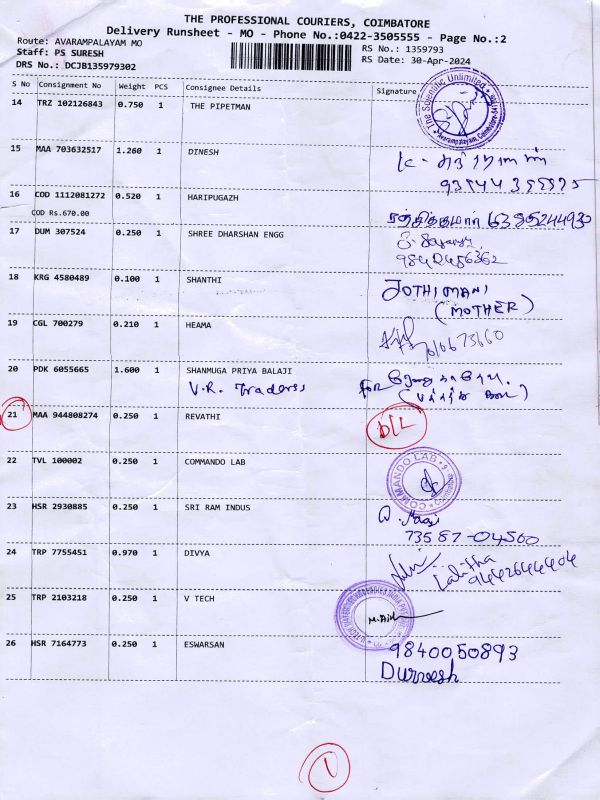 THE PROFESSIONAL COURIERS, COIMBATORE
Delivery Runsheet - MO - Phone No.:0422-3505555 - Page No.:2
Route: AVARAMPALAYAM MO
RS No.: 1359793
Staff: PS SURESH
RS Date: 30-Apr-2024
DRS No.: DCJB135979302
S No Consignment No Weight PCS Consignee Details Signature
14 TRZ 102126843 0.750 1 THE PIPETMAN
The Scientific Unlimited
15 MAA 703632517 1.260 1 DINESH
16 COD 1112081272 0.520 1 HARIPUGAZH
COD Rs.670.00
6395244930
17 DUM 307524 0.250 1 SHREE DHARSHAN ENGG
9842456362
18 KRG 4580489 0.100 1 SHANTHI
JOTHIMANI
(MOTHER)
19 CGL 700279 0.210 1 HEAMA
20 PDK 6055665 1.600 1 SHANMUGA PRIYA BALAJI
V.R. Traders, for
21 MAA 944808274 0.250 1 REVATHI
D/L
22 TVL 100002 0.250 1 COMMANDO LAB
COMMANDO LAB
23 HSR 2930885 0.250 1 SRI RAM INDUS
73587-04560
24 TRP 7755451 0.970 1 DIVYA
Lalitha
9442644404
25 TRP 2103218 0.250 1 V TECH
26 HSR 7164773 0.250 1 ESWARSAN
9840050893
Durvesh
1